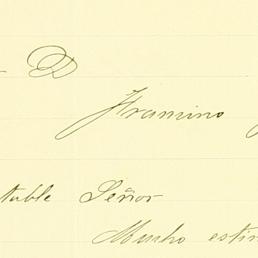 D
Framino
table Señor
Mucho estim